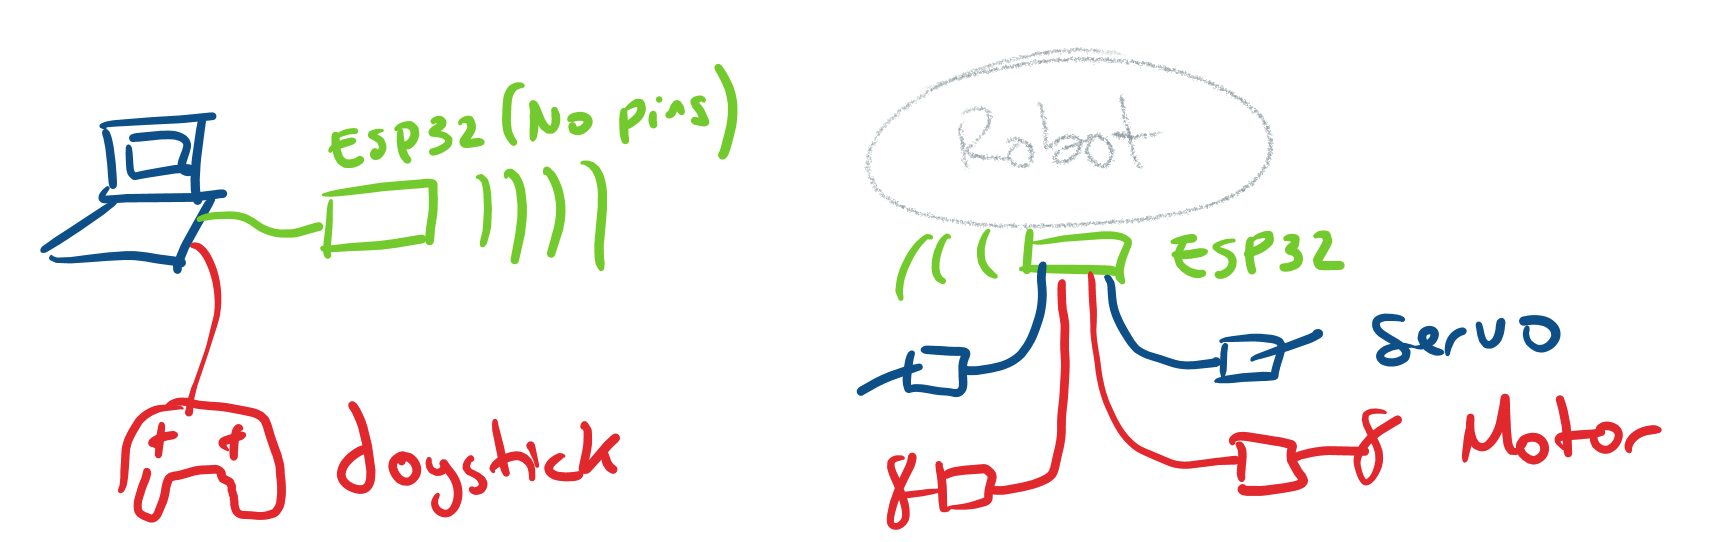 ESP32 (No pins)
Joystick
Robot
ESP32
Servo
Motor